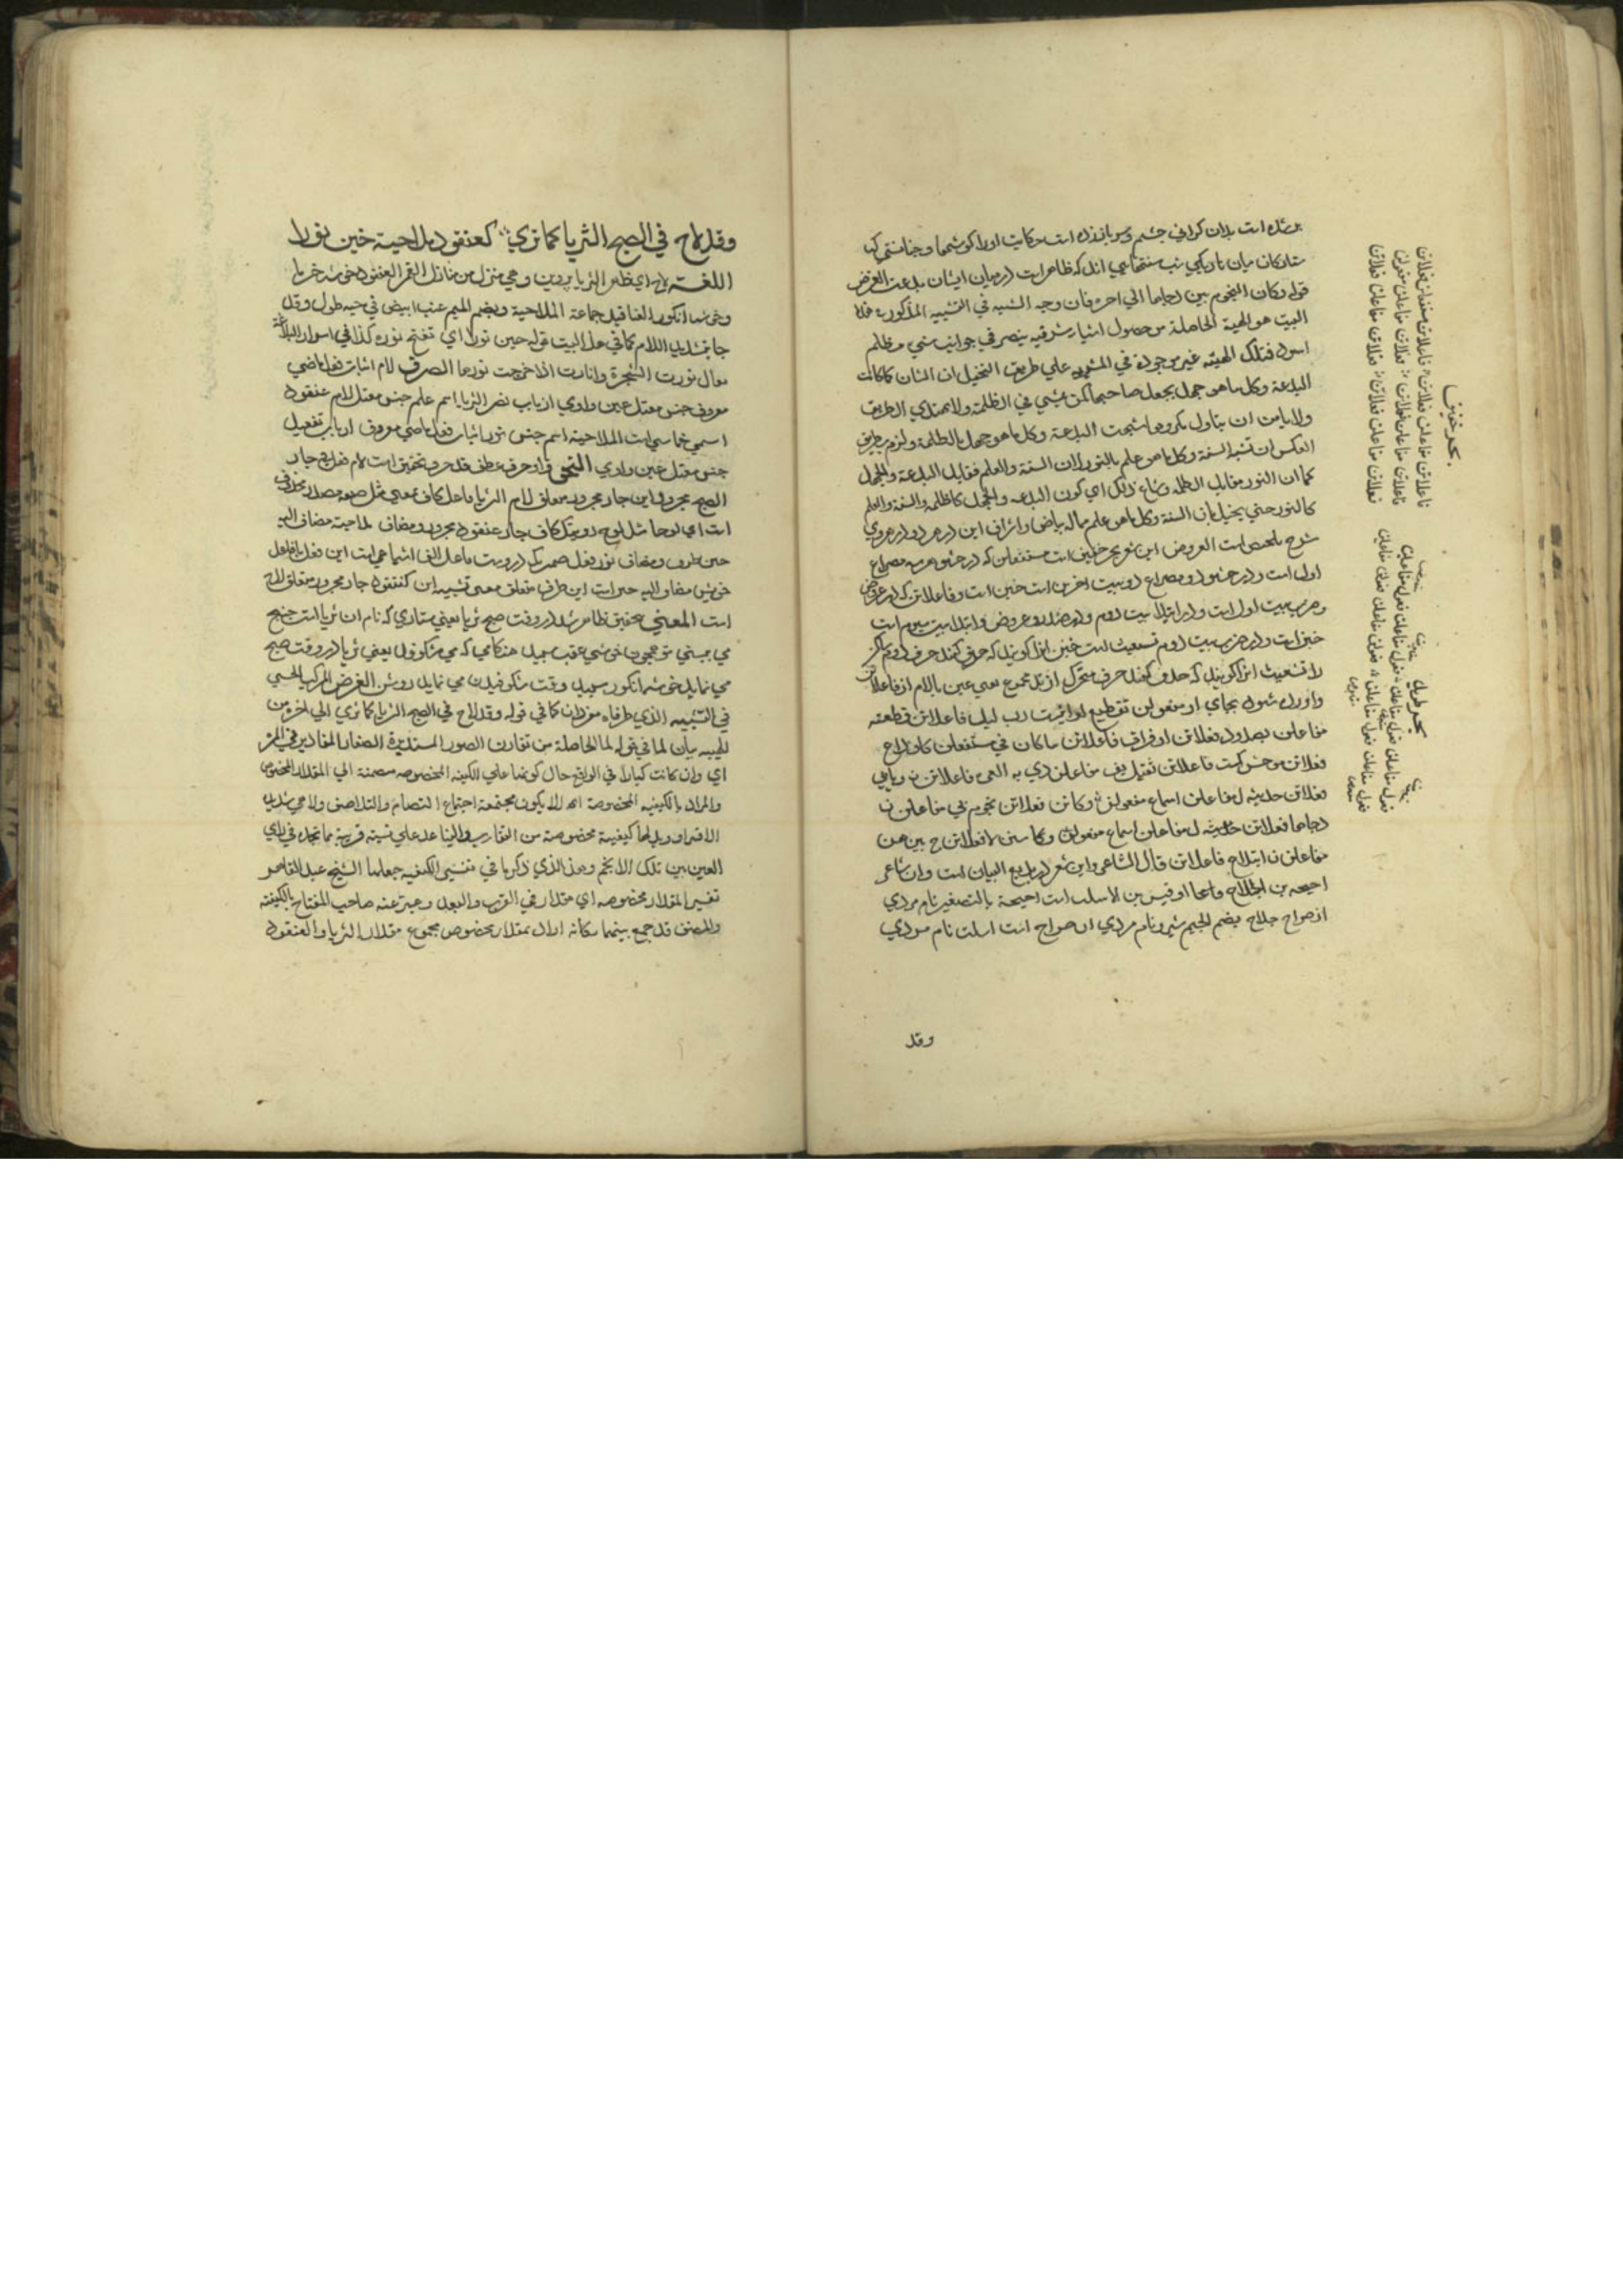 پر شده است بدان کرانی چشم وسر باز زده است حکایت اورا کوشها وچنانستی کیا
ستارکان میان تاریکی شب سنتهایی اند که ظاهر است درمیان ایشان بدعت الغرض
قوله وکان النجوم بین دجاها الی اخره فان وجه الشبه فی التشبیه المذکور فی هذا
البیت هو الهیة الحاصلة من حصول اشیاء مشرقیه بیض فی جوانب شی مظلم
اسود فتلک الهیئه غیر موجودة فی المشبه به علی طریق التخییل ان الشان کما کانت
البدعة وکل ما هو جهل یجعل صاحبها کمن یمشی فی الظلمة ولا یهتدی الطریق
ولا یامن ان ینال مکروها شبهت البدعة وکل ما هو جهل بالظلمة ولزم بطریق
العکس ان تشبه السنة وکل ما هو علم بالنور لان السنة والعلم مقابل البدعة والجهل
کما ان النور مقابل الظلمه وشاع ذلک ای کون البدعه والجهل کالظلمه والسنة والعلم
کالنور حتی یخیل بان السنة وکل ما هو علم ماله بیاض واشراق این در هردو در مروی
شرح ملخص است العروض این شعر بحر خفیف است مستفعلن که در حشو هر سه مصراع
اول است ودر حشو دو مصراع دو بیت اخرین است خبن است وفاعلاتن که در عروض
وضرب بیت اول است ودر ابتدا بیت دوم ودر صدر وعروض وابتدا بیت سیوم است
خبن است ودر ضرب بیت دوم تشعیث است خبن انرا کویند که حذف کنند حرف دوم ساکن
را تشعیث انرا کویند که حذف کنند حرف متحرک از وتد مجموع یعنی عین یا لام از فاعلاتن
واورده شود بجای او مفعولن تقطیع
مفاعلن بصدود فعلاتن او فراق فاعلاتن ما کان فی مستفعلن کان وداع
فعلاتن موحش کست فاعلاتن ثقیل یف مفاعلن ذی به العی فاعلاتن ن ویابی
فعلاتن حدیثه ل مفاعلن اسماع مفعولن وکان ن فعلاتن نجوم بی مفاعلن ن
دجاها فعلاتن حدیثه ل مفاعلن اسماع مفعولن وکا سنن لا فعلاتن ح بین هن
مفاعلن ن ابتداع فاعلاتن قال الشاعر واین شعر در بدایع البیان است وان شاعر
احیحه بن الجلاح واما اوقیس بن الاسلت است احیحة بالتصغیر نام مردی
از صراح جلاح بضم الجیم شیر ونام مردی از صراح است اسلت نام مردی
وقد
بحر خفیف
فاعلاتن مفاعلن فعلاتن فاعلاتن مستفعلن فعلاتن
فاعلاتن مفاعلن فعلاتن فعلاتن مفاعلن مفعولن
فعلاتن مفاعلن فعلاتن فعلاتن مفاعلن فعلاتن
بحر طویل
فعول مفاعلن فعول مفاعلن
وقد لاح فی الصبح الثریا کما تری کعنقود ملاحیة حین نورا
اللغة لاح ای ظهر الثریا پروین وهی منزل من منازل القمر العنقود خوشه خرما
وخوشه انکور العناقید جماعة الملاحیة وبضم المیم عنب ابیض فی حبه طول وقد
جا بتشدید اللام کما فی هذا البیت قوله حین نورا ای تفتح نوره کذا فی اسرار البلاغة
یقال نورت الشجرة وانارت اذا اخرجت نورها الصرف لاح اثبات فعل ماضی
معروف جنس معتل عین واوی از باب نصر الثریا اسم علم جنس معتل لام عنقود
اسمی خماسی است الملاحیة اسم جنس نورا اثبات فعل ماضی معروف از باب تفعیل
جنس معتل عین واوی النحو واو حرف عطف قد حرف تحقیق است لاح فعل فی جار
الصبح مجرور این جار مجرور متعلق لاح الثریا فاعل کاف بمعنی مثل صفه مصدر محذوف
است ای لوحا مثل لوح رویتک کاف جار عنقود مجرور ومضاف ملاحیة مضاف الیه
حین ظرف ومضاف نور فعل ضمیر که دروست فاعل الف اشباعی است این فعل بافاعل
خویش مضاف الیه حین است این ظرف متعلق معنی تشبیه این کعنقود جار مجرور متعلق لاح
است المعنی بتحقیق ظاهر شد در وقت صبح ثریا یعنی ستاری که نام ان ثریا است چنانچه
می بینی تو همچون خوشه عنب سپید هنکامی که می شکوفد یعنی ثریا در وقت صبح
می نماید خوشه انکور سپید وقت شکوفیدن می نماید روشن الغرض المرکب الحسی
فی التشبیه الذی طرفاه مفردان کما فی قوله وقد لاح فی الصبح الثریا کما تری الی اخره من
الهیئة بیان لما فی قوله لما الحاصلة من تقارن الصور المستدیرة الصغار المقادیر فی المرئ
ای وان کانت کبارا فی الواقع حال کونها علی الکیفیه المخصوصه منضمة الی المقدار المخصوص
والمراد بالکیفیه المخصوصة انها لا یکون مجتمعة اجتماع التضام والتلاصق ولا هی شدید
الافتراق وبل لها کیفیة مخصوصة من التقارب والتباعد علی نسبة قریبة مما تجده فی رای
العین بین تلک الانجم وهذا الذی ذکرنا فی تفسیر الکیفیه جعلها الشیخ عبد القاهر
تفسیر المقدار مخصوصه ای مقدار فی القرب والبعد وعبر عنه صاحب المفتاح بالکیفیة
والمصنف قد جمع بینهما کانه اراد بمقدار مخصوص مجموع مقدار الثریا والعنقود